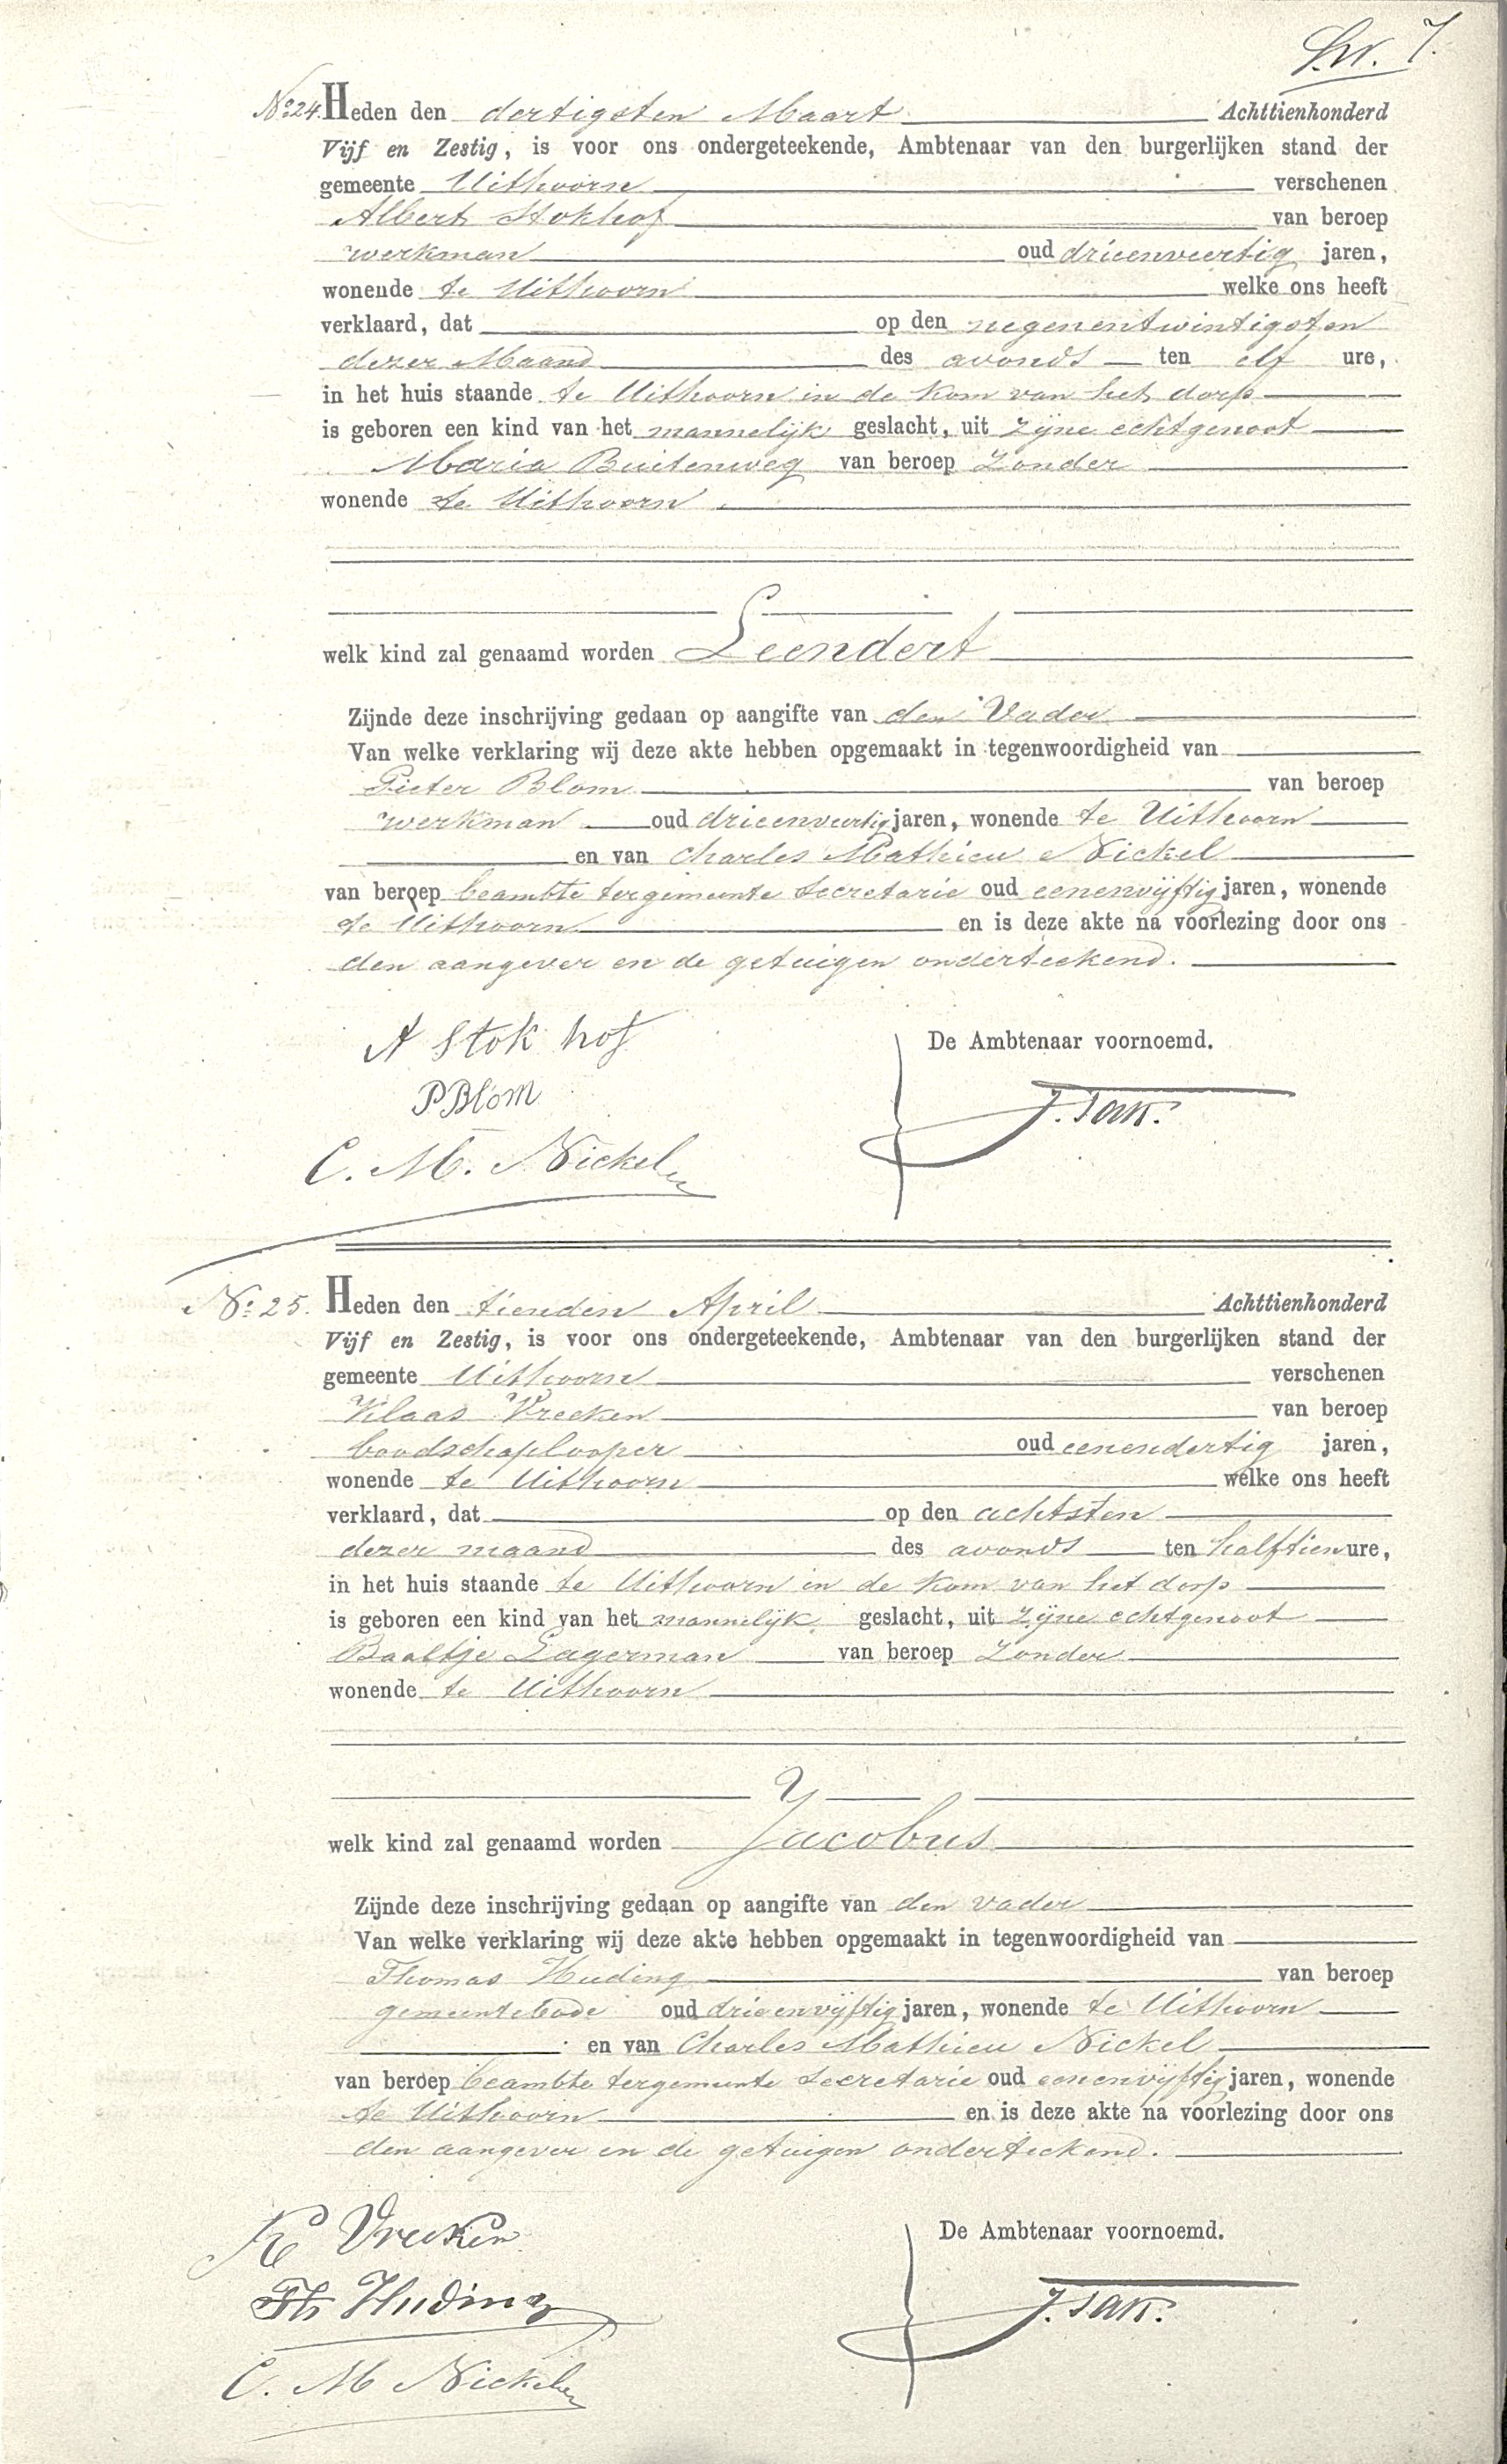 7.
No 24. Heden den dertigsten Maart Achttienhonderd
Vijf en Zestig, is voor ons ondergeteekende, Ambtenaar van den burgerlijken stand der
gemeente Uithoorn verschenen
Albert Stokhof van beroep
werkman oud drieenveertig jaren,
wonende te Uithoorn welke ons heeft
verklaard, dat op den negenentwintigsten
dezer Maand des avonds ten elf ure,
in het huis staande te Uithoorn in de kom van het dorp
is geboren een kind van het mannelijk geslacht, uit zijne echtgenoot
Maria Buitenweg van beroep Zonder
wonende te Uithoorn
welk kind zal genaamd worden Leendert
Zijnde deze inschrijving gedaan op aangifte van den Vader
Van welke verklaring wij deze akte hebben opgemaakt in tegenwoordigheid van
Pieter Blom van beroep
werkman oud drieenveertig jaren, wonende te Uithoorn
en van Charles Mathieu Nickel
van beroep beambte ter gemeente Secretarie oud eenenvijftig jaren, wonende
te Uithoorn en is deze akte na voorlezing door ons
den aangever en de getuigen onderteekend.
A Stok hof
De Ambtenaar voornoemd.
P Blom
J. Tak.
C. M. Nickel
No 25. Heden den tienden April Achttienhonderd
Vijf en Zestig, is voor ons ondergeteekende, Ambtenaar van den burgerlijken stand der
gemeente Uithoorn verschenen
Klaas Vrecken van beroep
boodschaplooper oud eenendertig jaren,
wonende te Uithoorn welke ons heeft
verklaard, dat op den achtsten
dezer maand des avonds ten halftien ure,
in het huis staande te Uithoorn in de kom van het dorp
is geboren een kind van het mannelijk geslacht, uit zijne echtgenoot
Baaltje Lagerman van beroep Zonder
wonende te Uithoorn
welk kind zal genaamd worden Jacobus
Zijnde deze inschrijving gedaan op aangifte van den vader
Van welke verklaring wij deze akte hebben opgemaakt in tegenwoordigheid van
Thomas Huding van beroep
gemeentebode oud drieenvijftig jaren, wonende te Uithoorn
en van Charles Mathieu Nickel
van beroep beambte ter gemeente Secretarie oud eenenvijftig jaren, wonende
te Uithoorn en is deze akte na voorlezing door ons
den aangever en de getuigen onderteekend.
K Vrecken
De Ambtenaar voornoemd.
Th Huding
J. Tak.
C. M Nickel